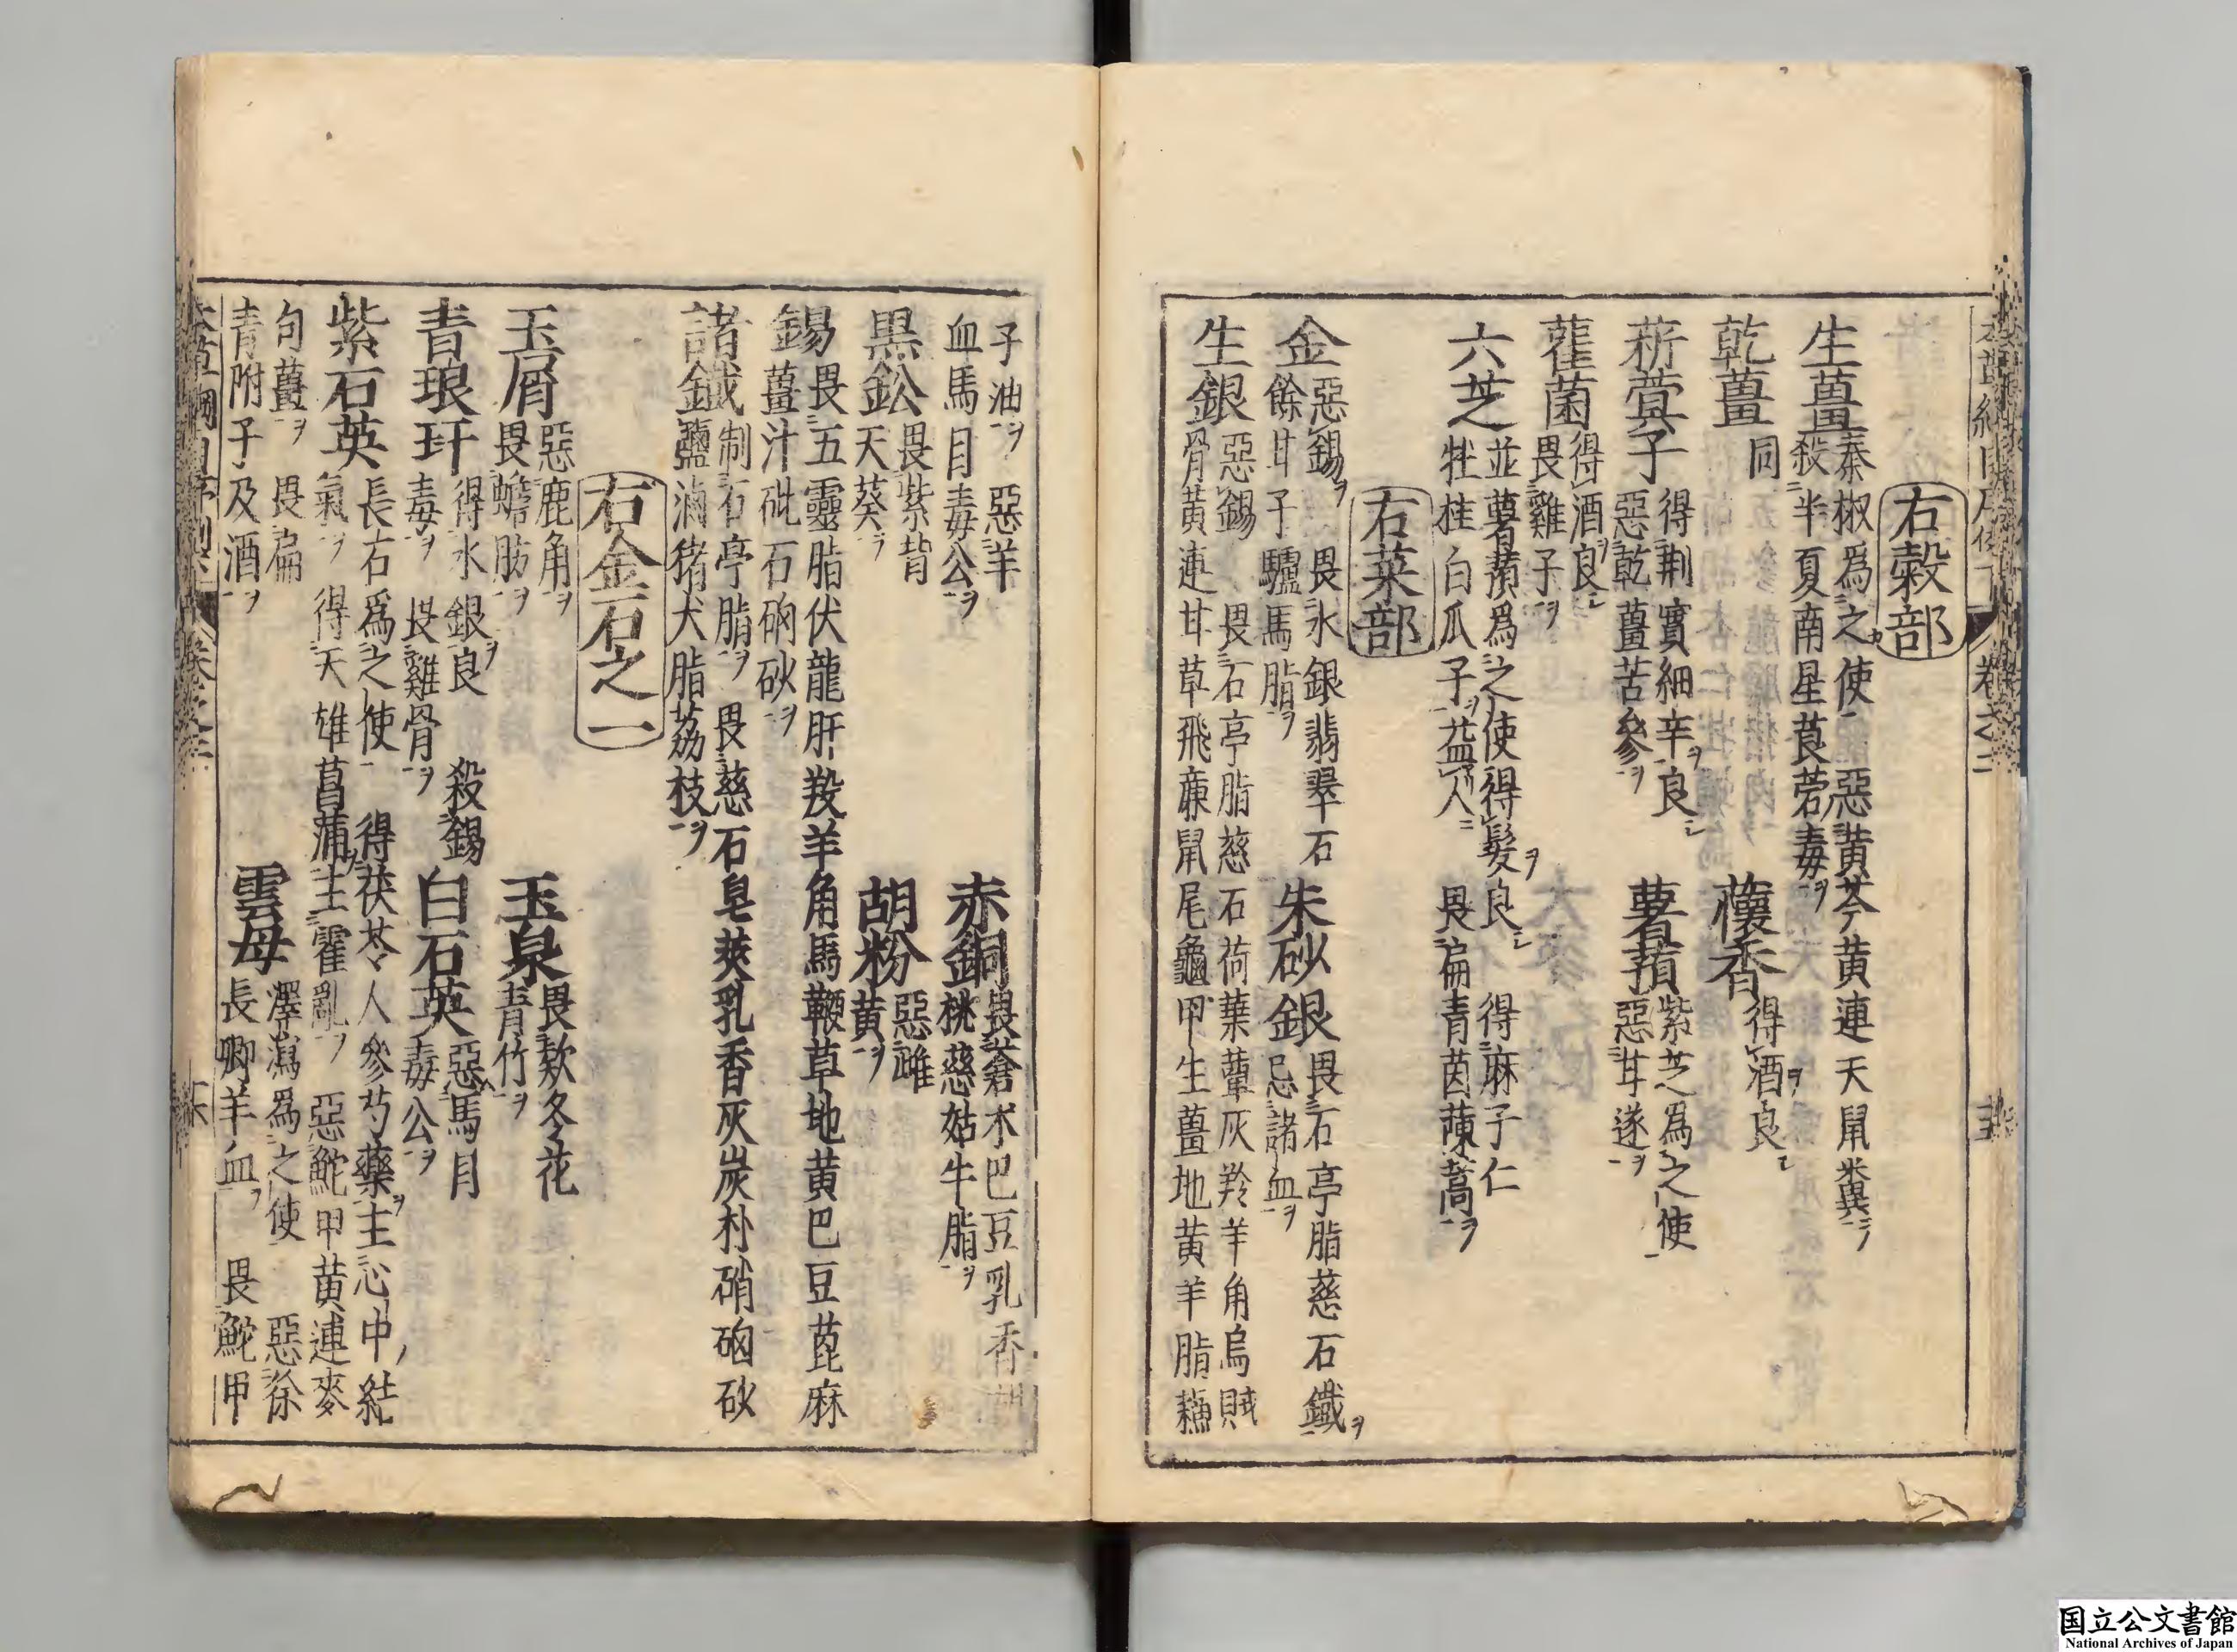 本草綱目序例下 卷之二
右穀部
生薑
秦椒爲之使 惡黄芩黄連天鼠糞
殺半夏南星莨菪毒
乾薑
同
蘹香
得酒良
菥蓂子
得荆實細辛良
惡乾薑苦參
薯蕷
紫芝爲之使
惡甘遂
雚菌
得酒良
畏雞子
六芝
並薯蕷爲之使得髮良 得麻子仁
牡桂白瓜子益人 畏扁青茵蔯蒿
右菜部
金
惡錫 畏水銀翡翠石
餘甘子驢馬脂
朱砂銀
畏石亭脂慈石鐵
忌諸血
生銀
惡錫 畏石亭脂慈石荷葉蕈灰羚羊角烏賊
骨黄連甘草飛廉鼠尾龜甲生薑地黄羊脂蘓
子油 惡羊
血馬目毒公
赤銅
畏蒼朮巴豆乳香胡
桃慈姑牛脂
黒鈆
畏紫背
天葵
胡粉
惡雌
黄
錫
畏五靈脂伏龍肝羖羊角馬鞭草地黄巴豆蓖麻
薑汁砒石硇砂
諸鐵
制石亭脂 畏慈石皂莢乳香灰炭朴硝硇砂
鹽滷猪犬脂荔枝
右金石之一
玉屑
惡鹿角
畏蟾肪
玉泉
畏欵冬花
青竹
青琅玕
得水銀良 殺錫
毒 畏雞骨
白石英
惡馬目
毒公
紫石英
長石爲之使 得茯苓人參芍藥主心中結
氣 得天雄菖蒲主霍亂 惡鮀甲黄連麥
句薑 畏扁
青附子及酒
雲母
澤瀉爲之使 惡徐
長卿羊血 畏鮀甲
本草綱目序例 卷之二